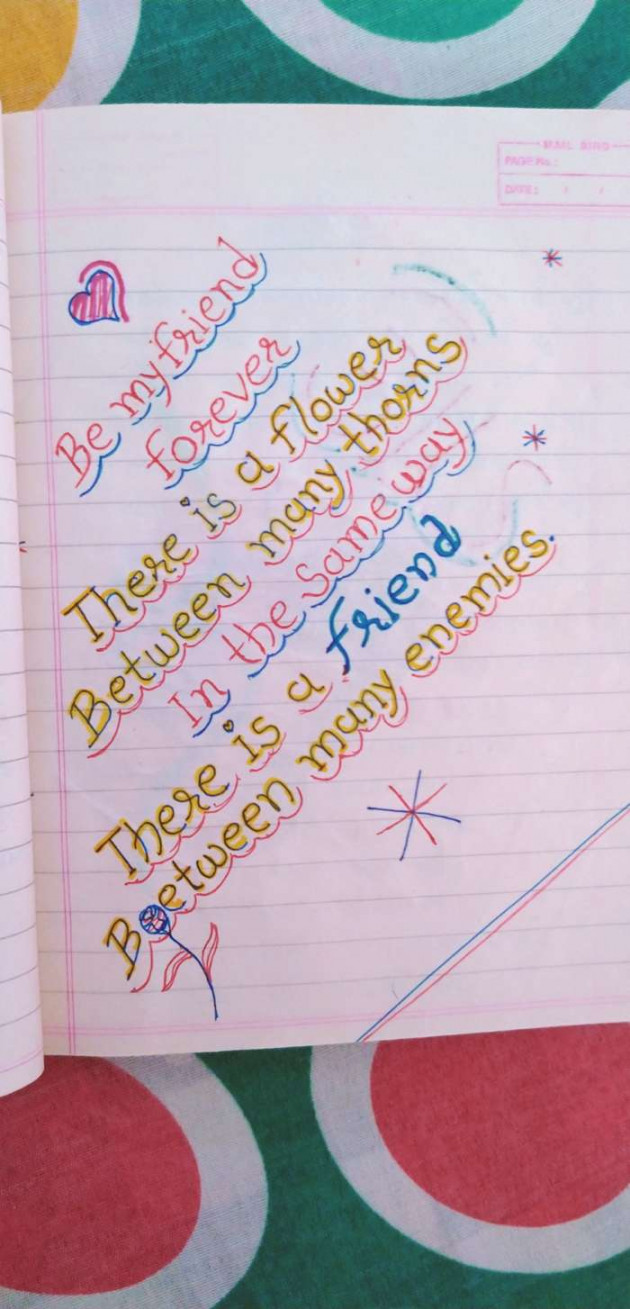 MAIL BIRD
PAGE No.:
DATE: / /
Be my friend
forever
There is a flower
Between many thorns
In the same way
There is a friend
Between many enemies.